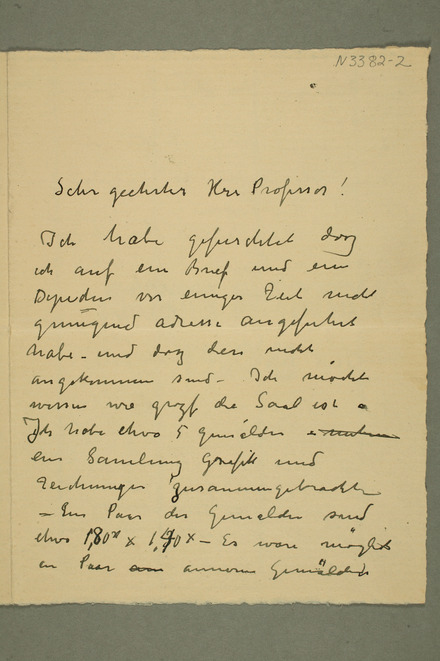 N3382-2
Sehr geehrter Herr Professor!
Ich habe gefürchtet dasz
ich auf ein Brief und ein
Depeches vor einiger Zeit nicht
genügend adresse angeführt
habe – und dasz dere nicht
angekommen sind – Ich möchte
wissen wie grosz die Saal ist
Ich habe etwa 5 gemälder
ein Samlung Grafik und
Zeichnunger zusammengebracht
– Ein Paar der Gemälder sind
etwa 1,80 x 1,40 – Es wäre möglich
en Paar